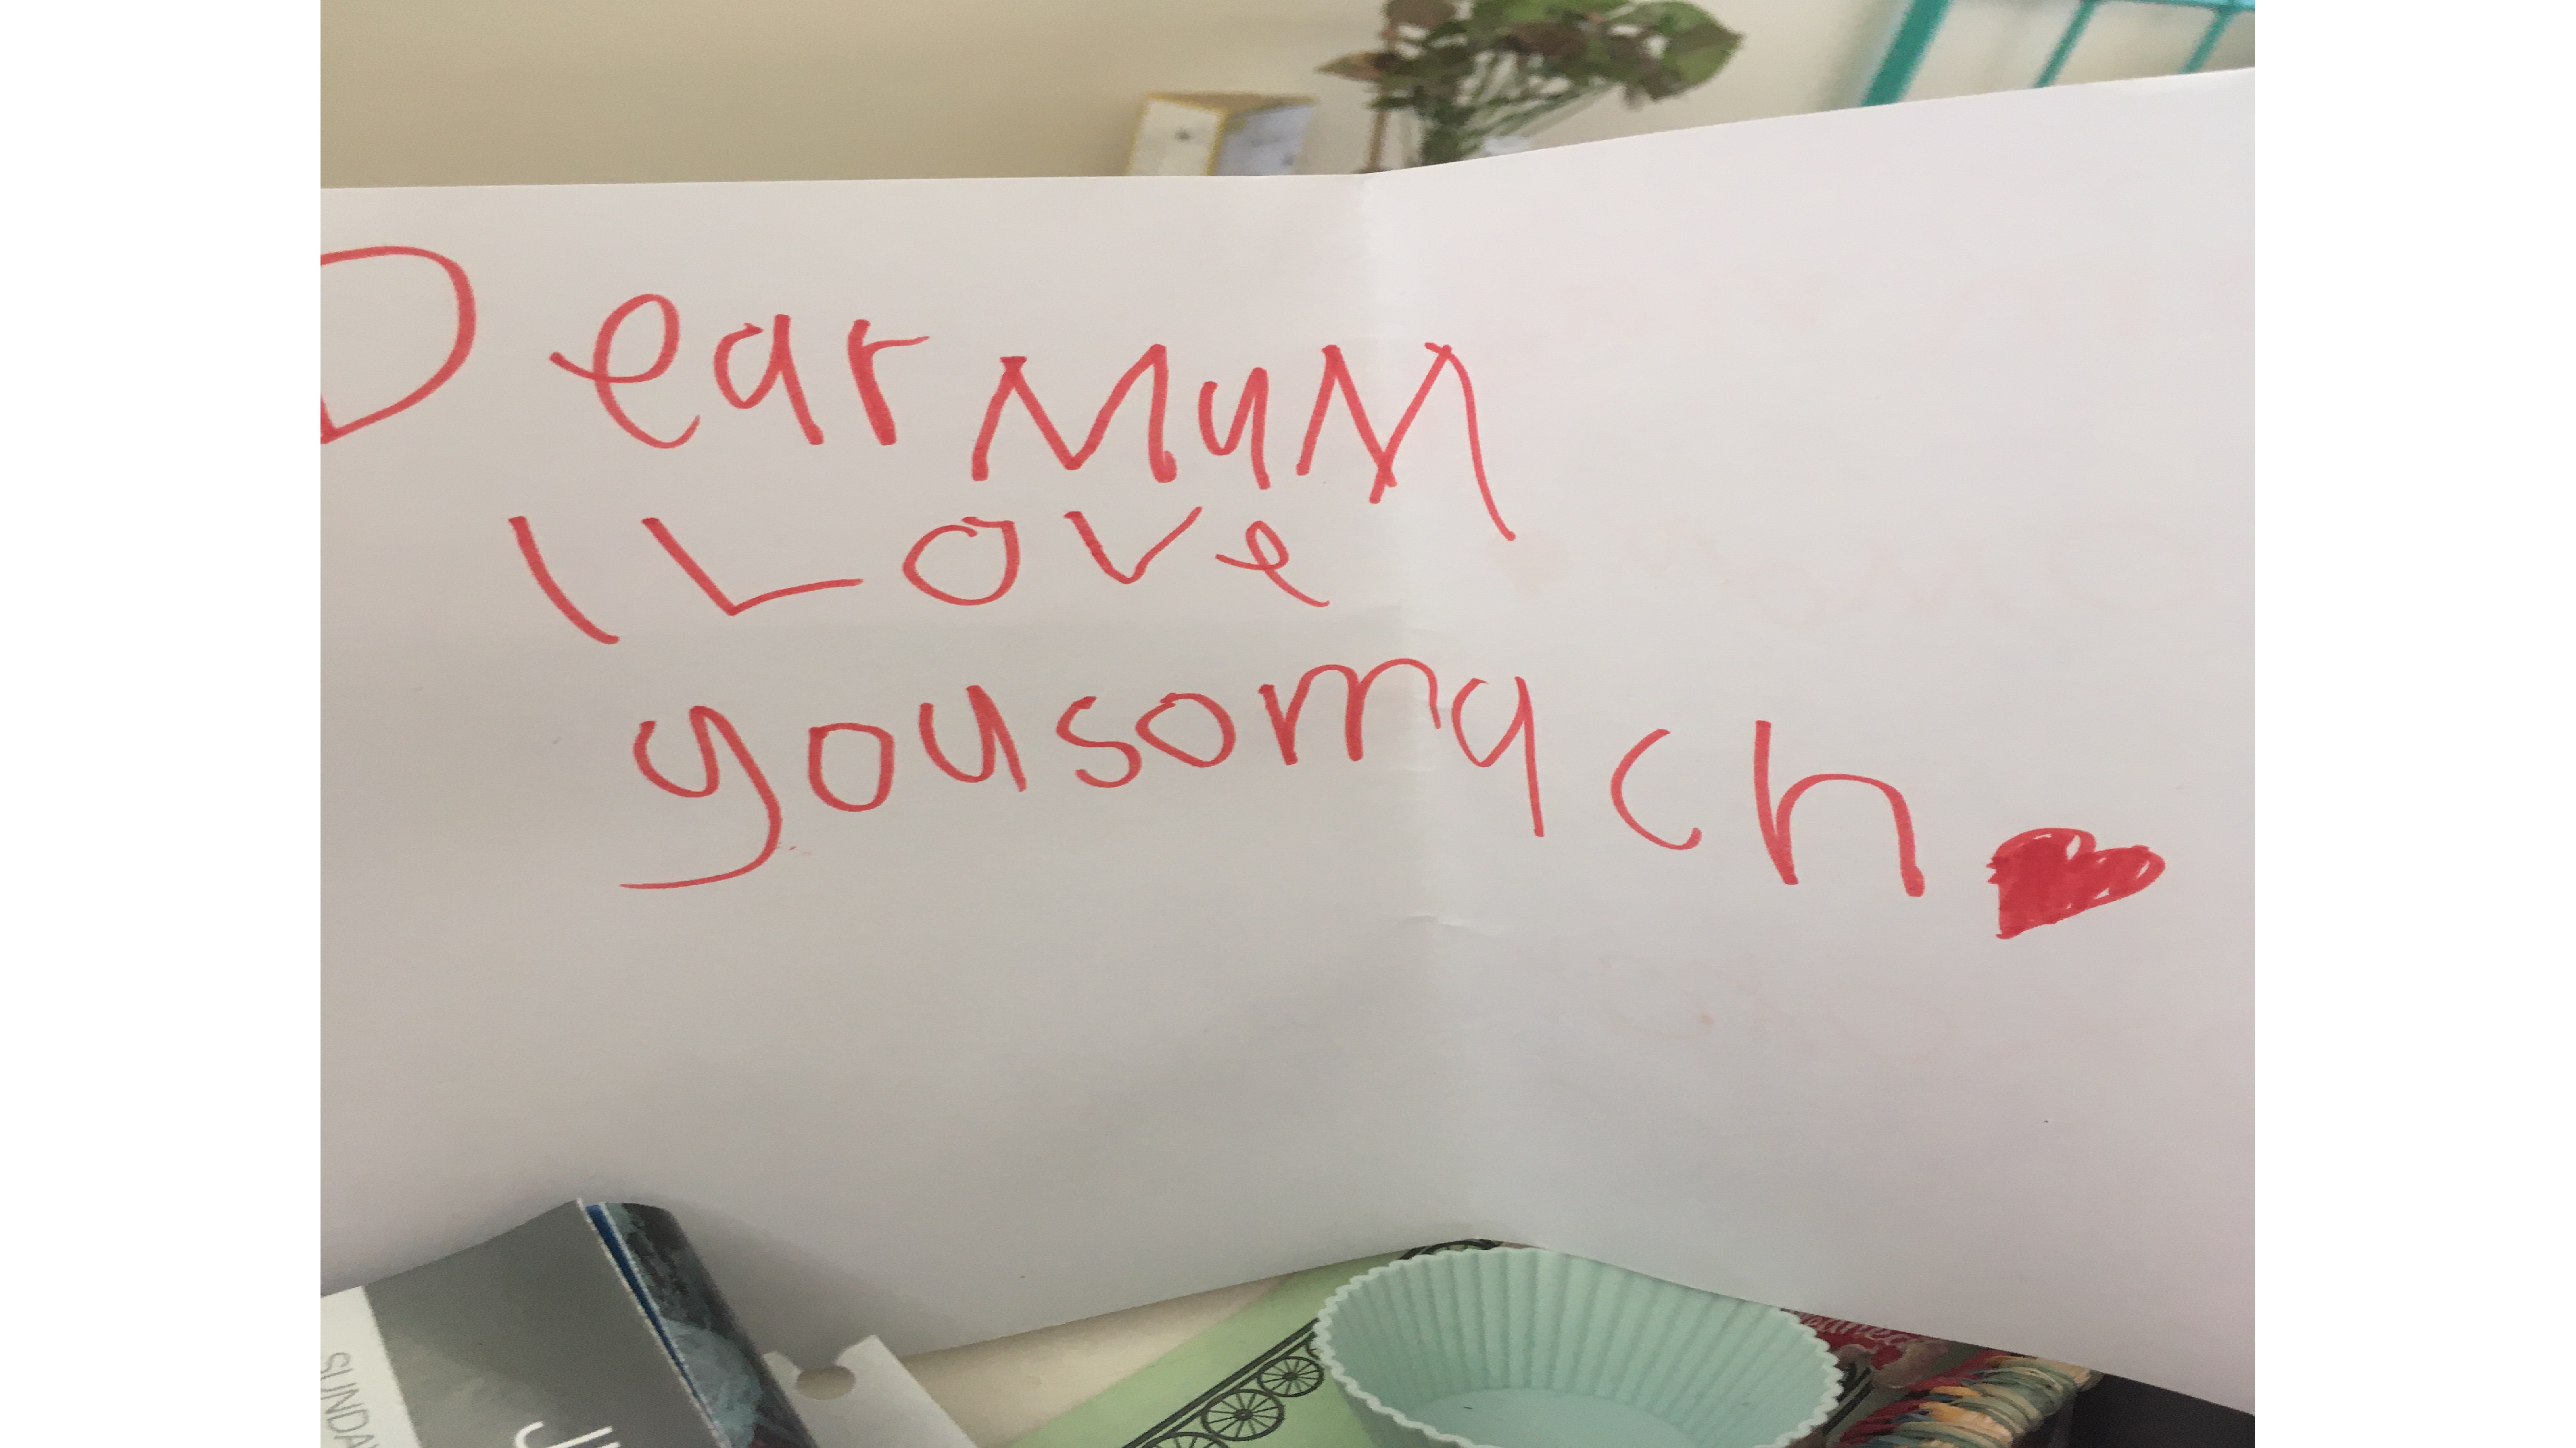 Dear MuM
I Love
you so much
SUNDAY